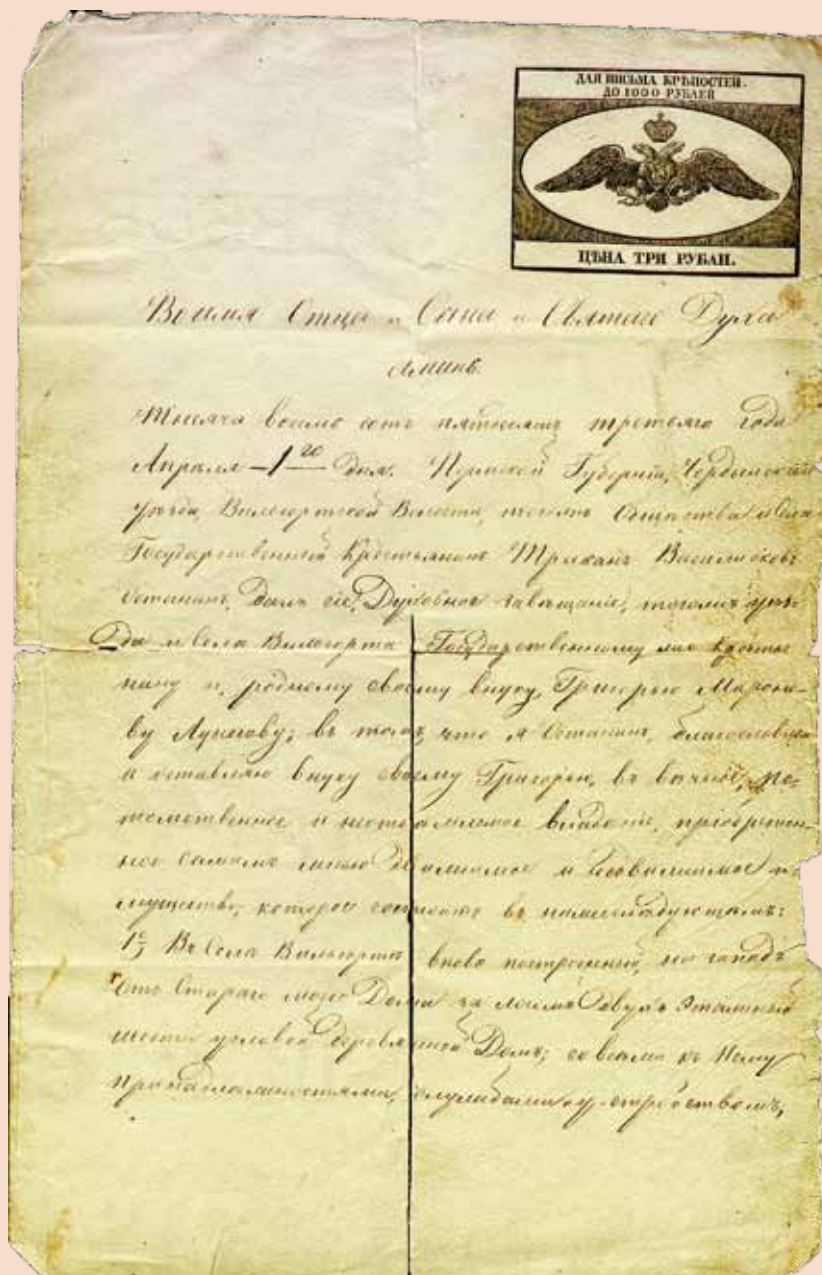 ДЛЯ ПИСЬМА КРѢПОСТЕЙ.
ДО 1000 РУБЛЕЙ
ЦѢНА ТРИ РУБЛИ.
Во имя Отца и Сына и Святаго Духа
Аминь.
Тысяча восемь сотъ пятьдесятъ третьяго года
Апрѣля 1го дня. Пермской Губерніи, Чердынскаго
уѣзда, Вильгортской Волости, Общества и села
Государственный Крестьянинъ Васильевъ
Останинъ, далъ сіе Духовное завѣщаніе, тогожъ уѣз-
да и села Вильгорта Государственному же крестья-
нину и родному своему внуку, Григорью Миронову
Лунегову; въ томъ, что я Останинъ, благословляю
и оставляю внуку своему Григорью, въ вѣчное, по-
томственное и неотъемлемое владѣніе, пріобрѣтен-
ное самимъ мною движимое и недвижимое и-
мущество, которое состоитъ въ нижеслѣдующемъ:
1е) Въ селѣ Вильгортѣ вновь построенный, на западъ
отъ Стараго моего Дома двухъ этажный
шести угловой деревянной Домъ; со всѣми къ нему
принадлежностями, службами и устройствомъ,